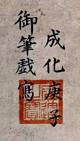 成化庚子
御筆戲寫